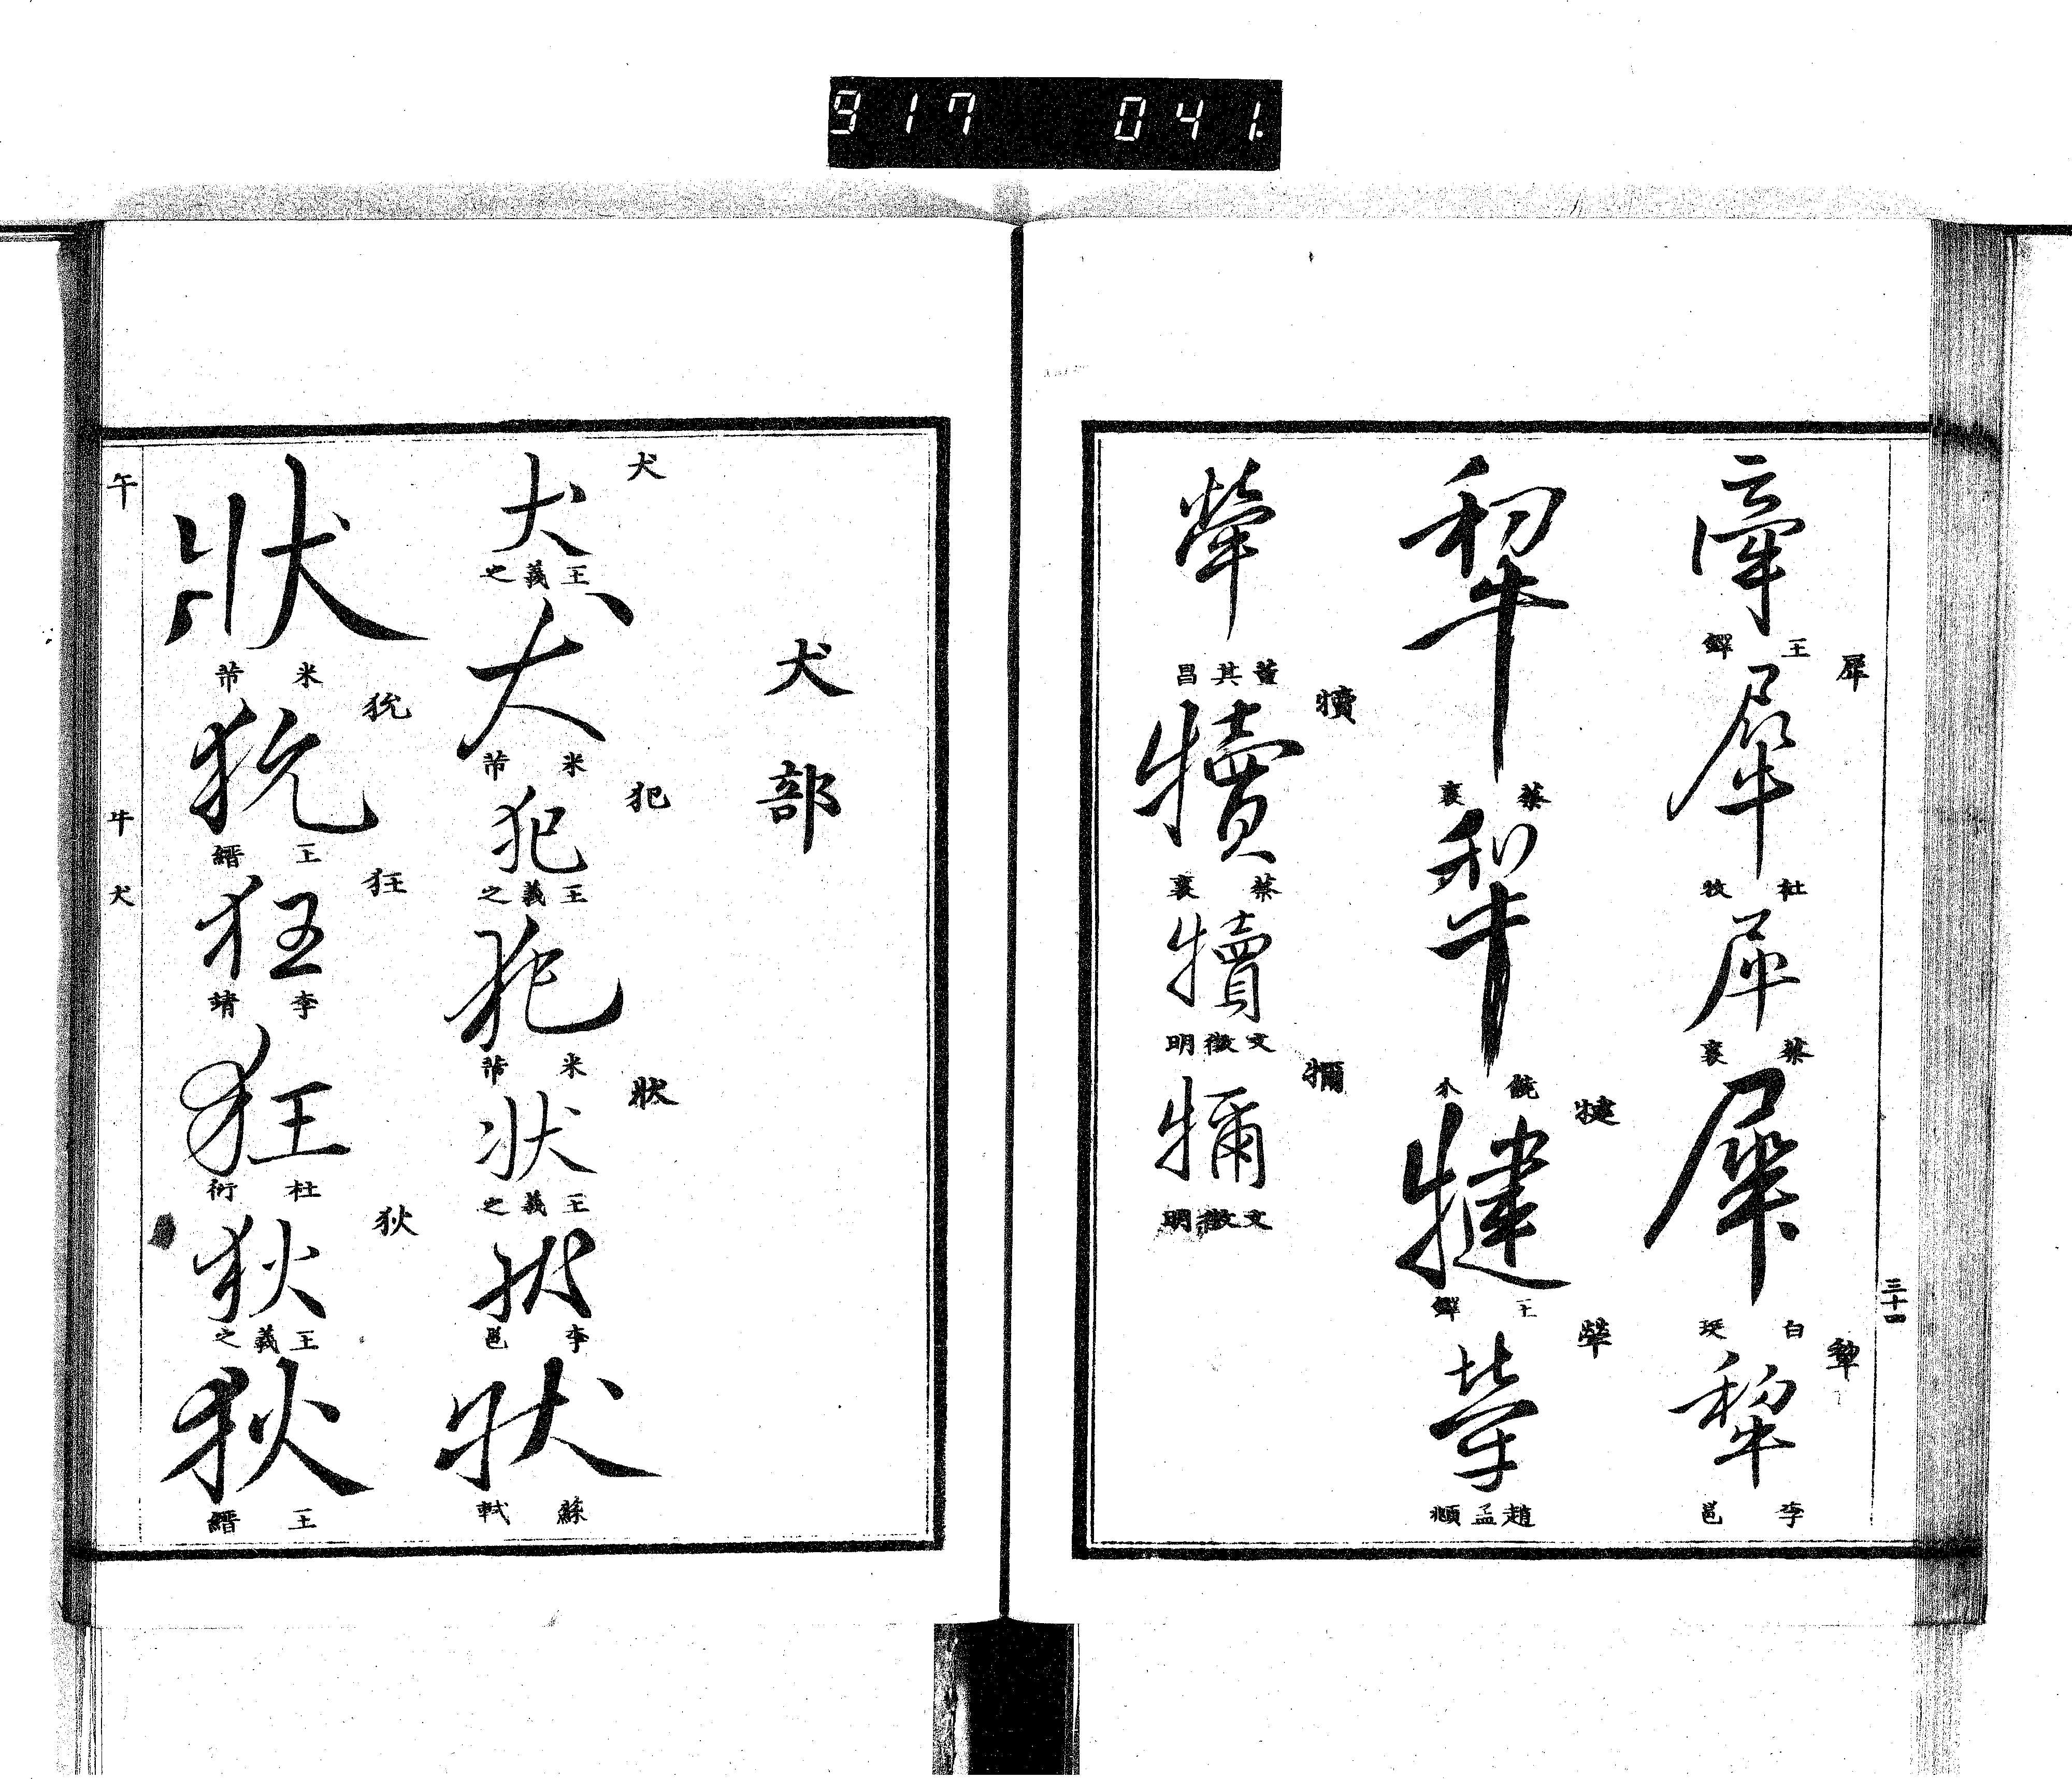 917 041.
三十四
牽
王鐸
犀
犀
杜牧
犀
蔡襄
犀
白玨
犂
犂
李邕
犂
蔡襄
犂
饒介
犍
犍
王鐸
犖
犖
趙孟頫
犖
董其昌
犢
犢
蔡襄
犢
文徵明
犤
文徵明
犬部
犬
犬
王羲之
犬
米芾
犯
犯
王羲之
犯
米芾
狀
狀
王羲之
狀
李邕
狀
蘇軾
狀
米芾
狁
狁
王縉
狂
狂
李靖
狂
杜衍
狄
狄
王羲之
狄
王縉
午
牛 犬